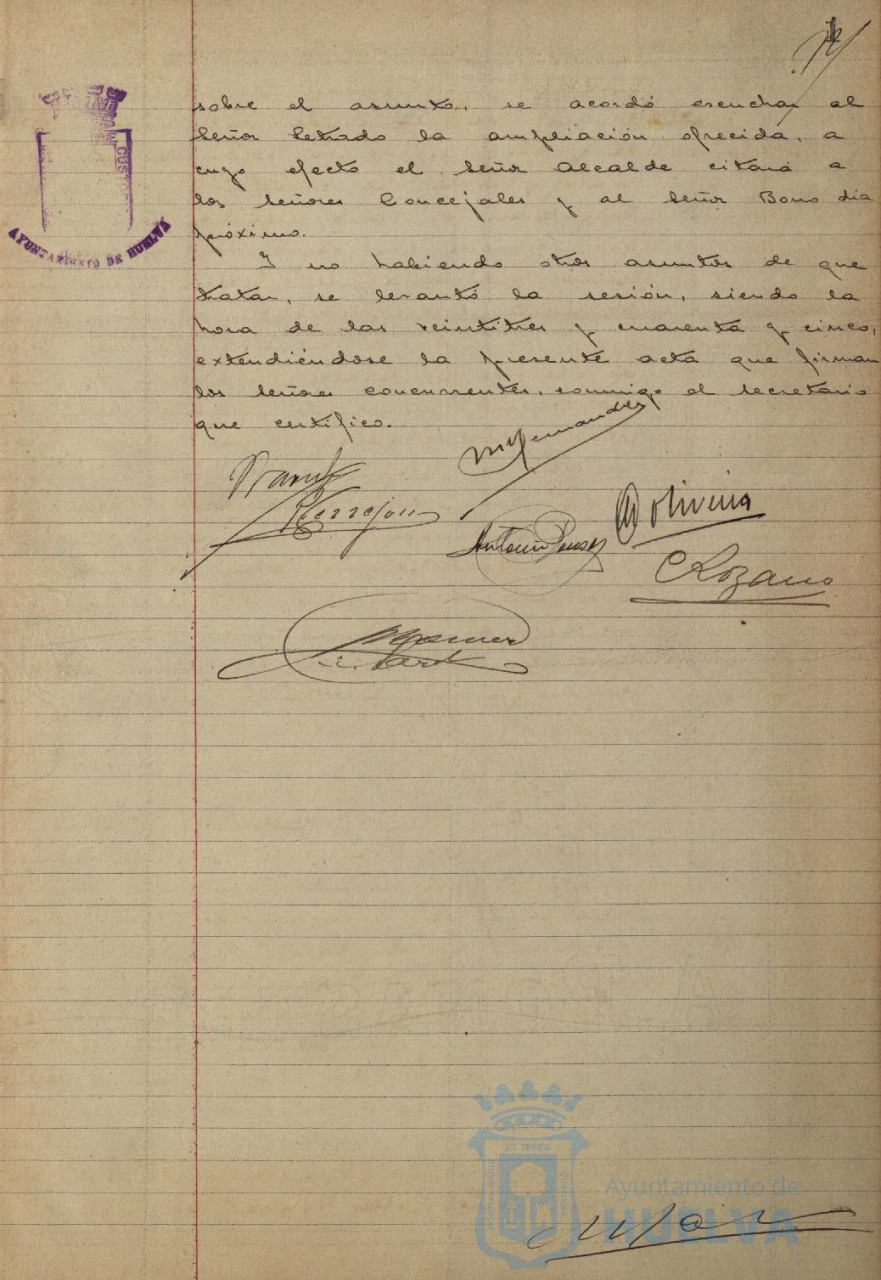 sobre el asunto, se acordó escuchar al
Señor Letrado la ampliación ofrecida, a
cuyo efecto el Señor Alcalde citará a
los Señores Concejales y al Señor Bono día
próximo.
Y no habiendo otros asuntos de que
tratar, se levantó la sesión, siendo la
hora de las veintitres y cuarenta y cinco,
extendiéndose la presente acta que firman
los Señores concurrentes, conmigo el secretario
que certifico.
AYUNTAMIENTO DE HUELVA
Terrejon
Hernandez
Oliveira
Antonio
C Lozano
Ayuntamiento de
HUELVA